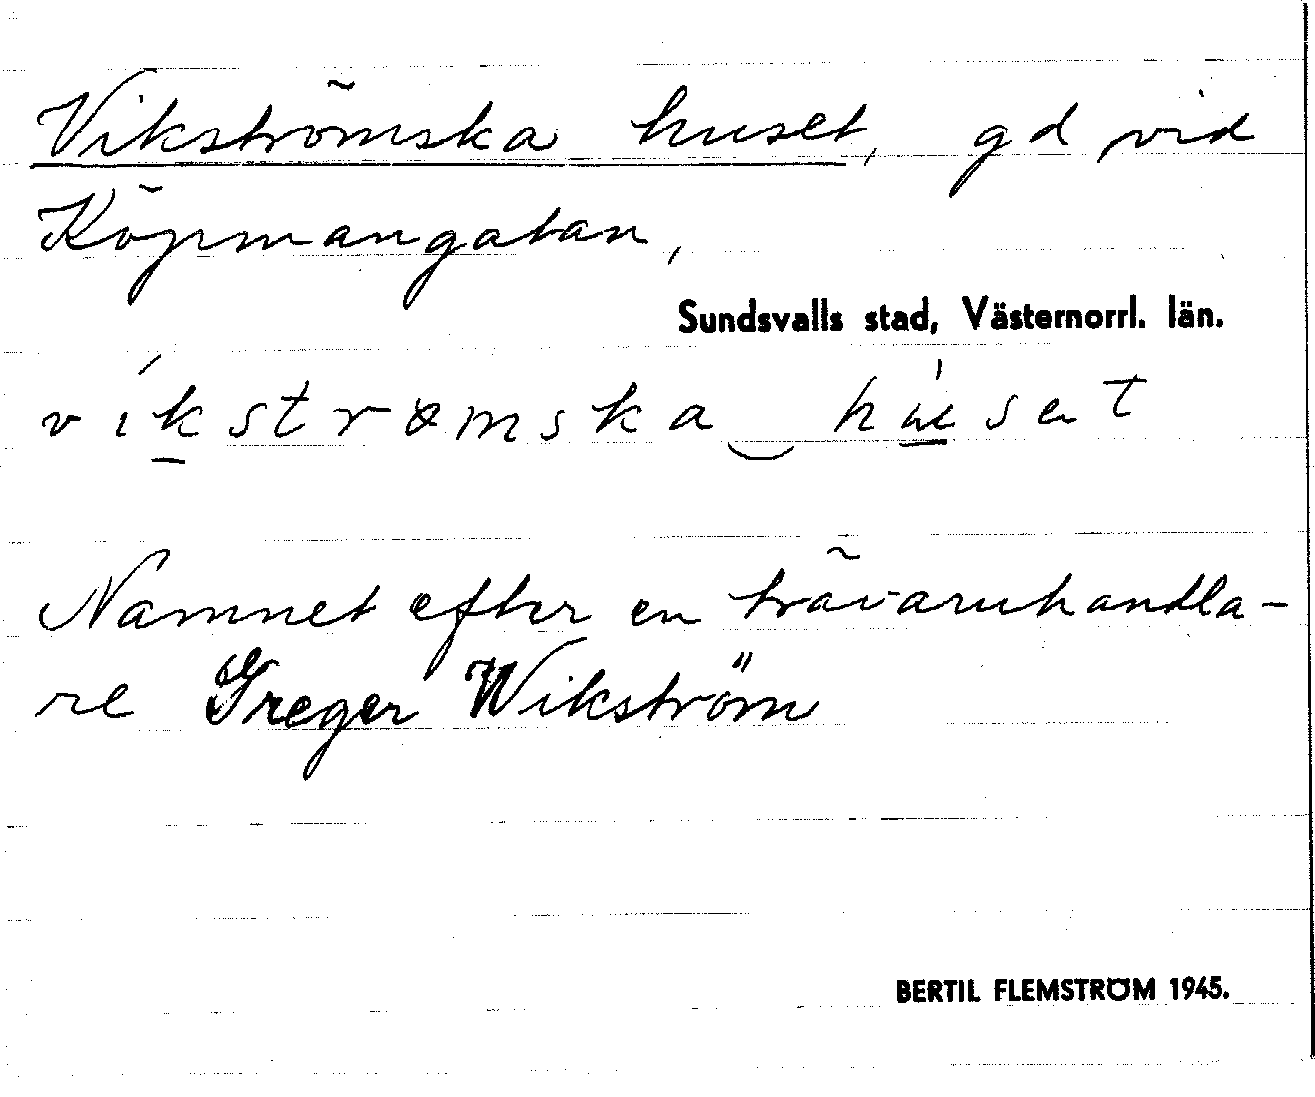 Vikströmska huset, gd vid
Köpmangatan,
Sundsvalls stad, Västernorrl. län.
víkstrømska‿hʉ́sət
Namnet efter en trävaruhandla-
re Greger Wikström
BERTIL FLEMSTRÖM 1945.